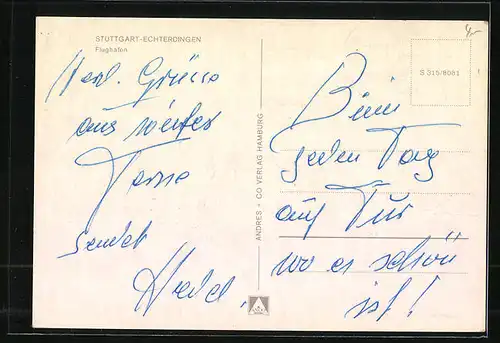 STUTTGART-ECHTERDINGEN
Flughafen
Herl. Grüsse
aus weiter
Ferne
sendet
ANDRES + CO VERLAG HAMBURG
S 315/8081
Bin
jeden Tag
auf Tur
wo es schön
ist!